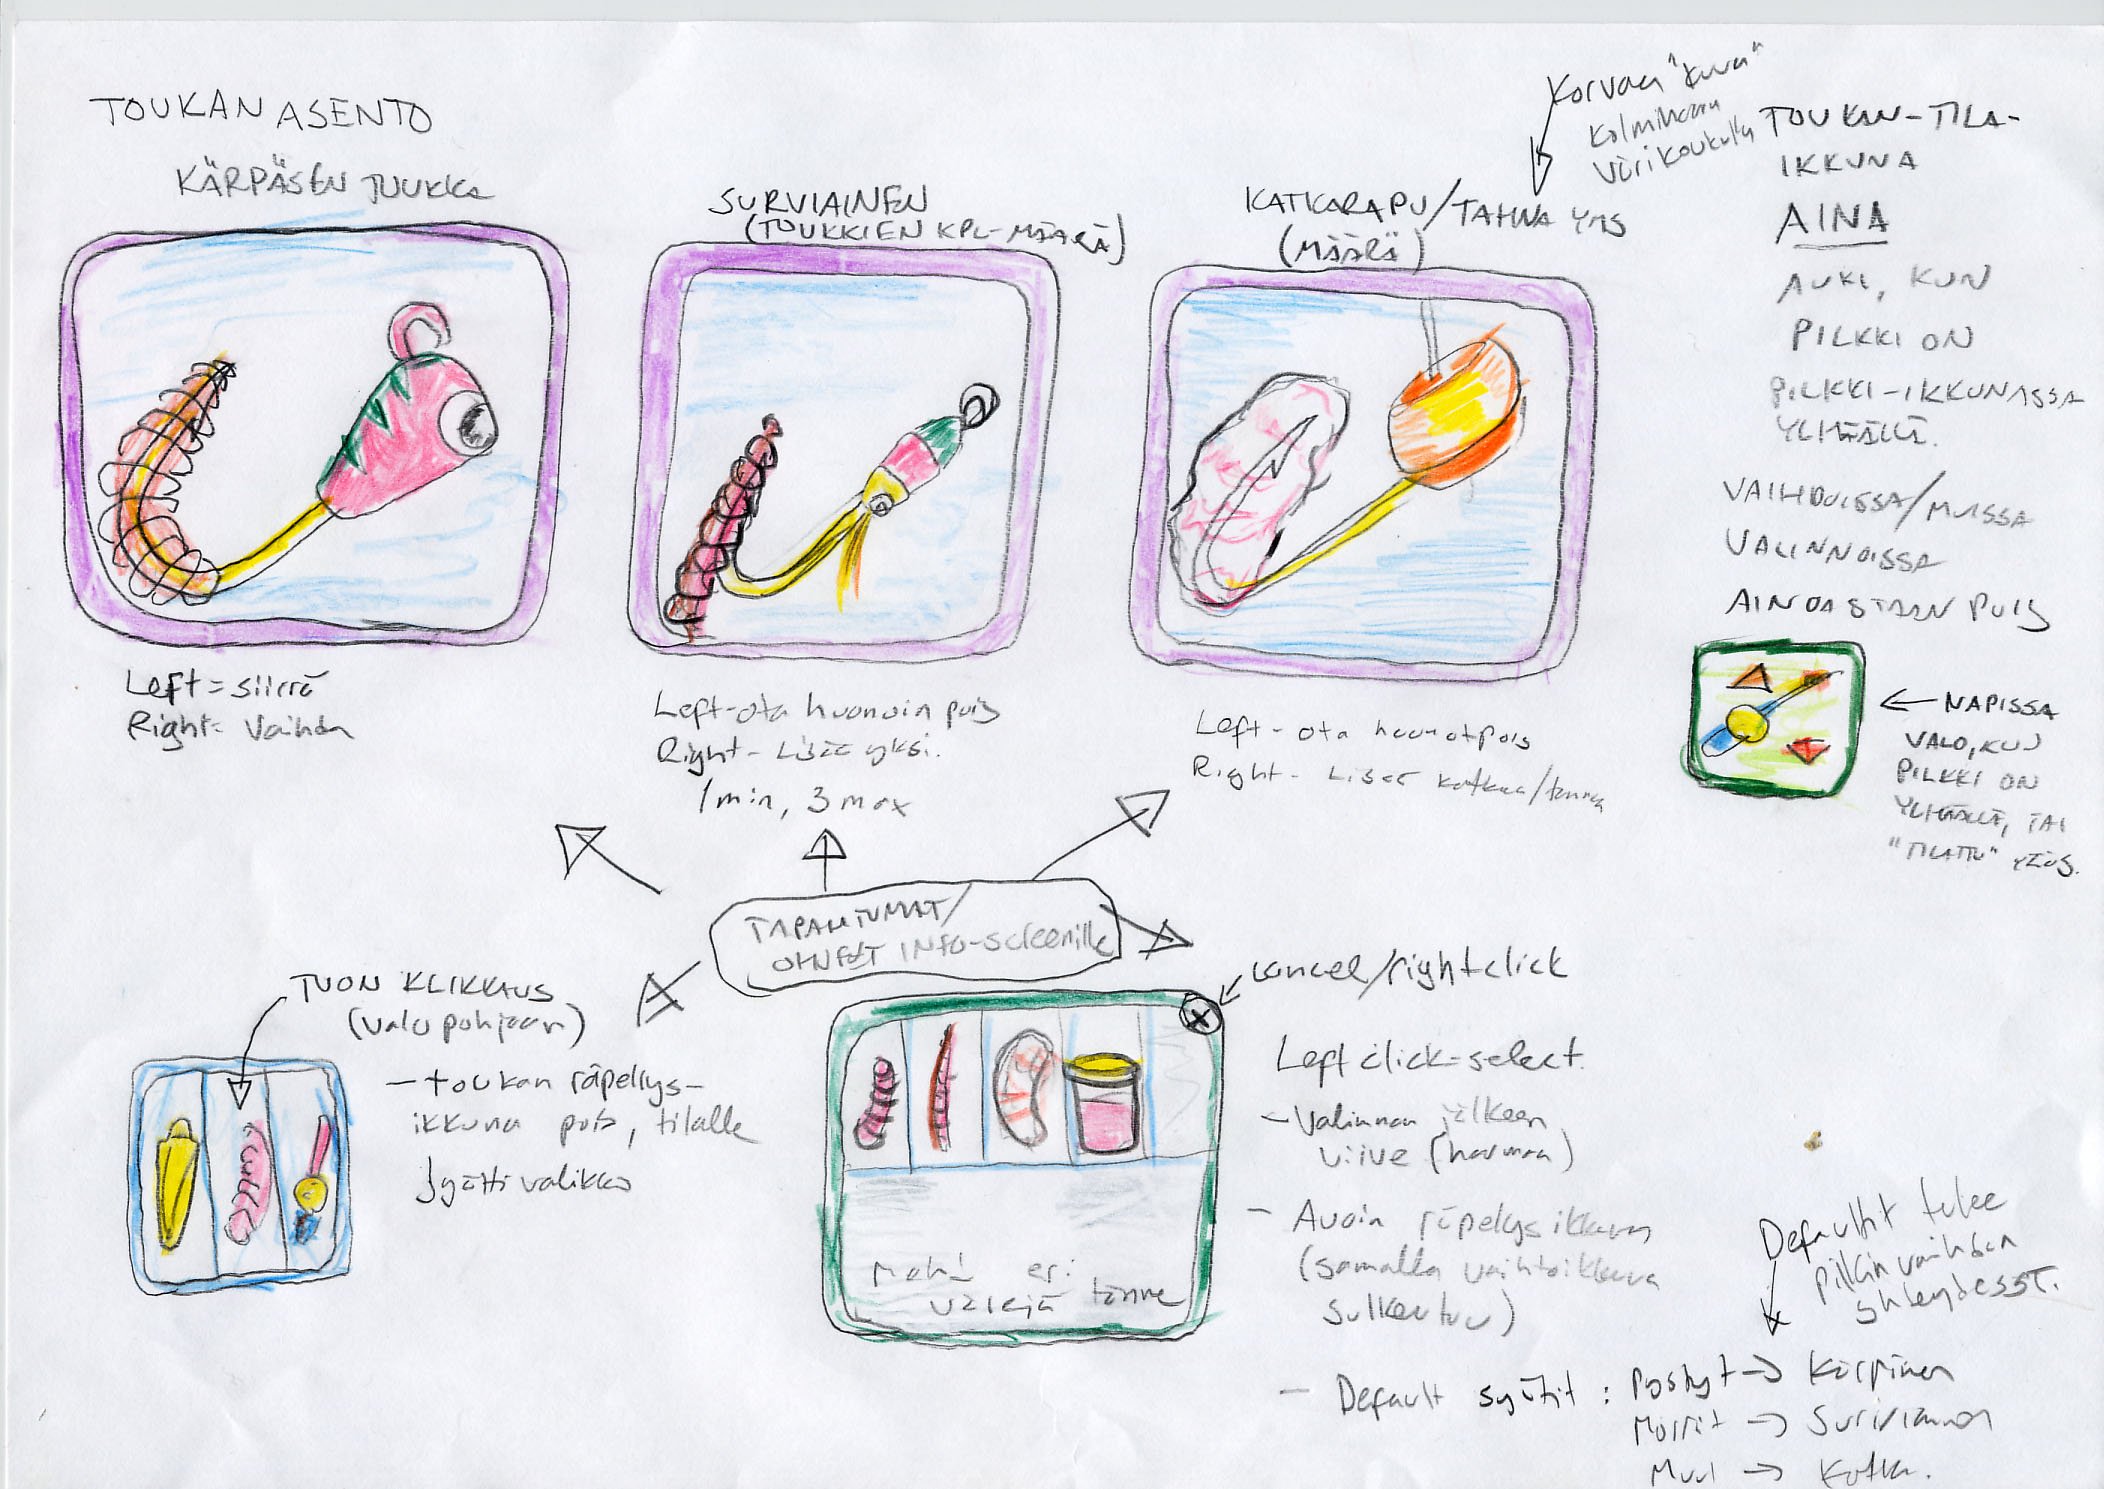 TOUKAN ASENTO
KÄRPÄSEN TUUKKA
SURVIAINEN
(TOUKKIEN KPL-MÄÄRÄ)
KATKARAPU/TAHNA YMS
(MÄÄRÄ)
Korvaa "kuva"
kolmihaara
värikoukulla
TOUKAN-TILA-
IKKUNA
AINA
AUKI, KUN
PILKKI ON
PILKKI-IKKUNASSA
YLHÄÄLLÄ.
VAIHDOISSA/MUISSA
VALINNOISSA
AINOASTAAN POIS
Left = siirrä
Right- Vaihda
Left-ota huonoin pois
Right- Lisää yksi.
1 min, 3 max
Left - ota huonot pois
Right - Lisää katkaa/tahnaa
← NAPISSA
VALO, KUN
PILKKI ON
YLHÄÄLLÄ, TAI
"TILATTU" YLÖS.
TAPAHTUMAT/
OHJEET INFO-screenille
TUON KLIKKAUS
(valo pohjaan)
- toukan räpellys-
ikkuna pois, tilalle
syöttivalikko
cancel/rightclick
Left click = select.
- Valinnan jälkeen
viive (harmaa)
- Avaa räpellysikkuna
(samalla vaihtoikkuna
sulkeutuu)
Mahd. eri
värejä tänne
Defaultit tulee
pilkin vaihdon
yhteydessä.
- Default syötit : Pystyt → Kärpänen
Mormit → Surviainen
Muut → Katka.